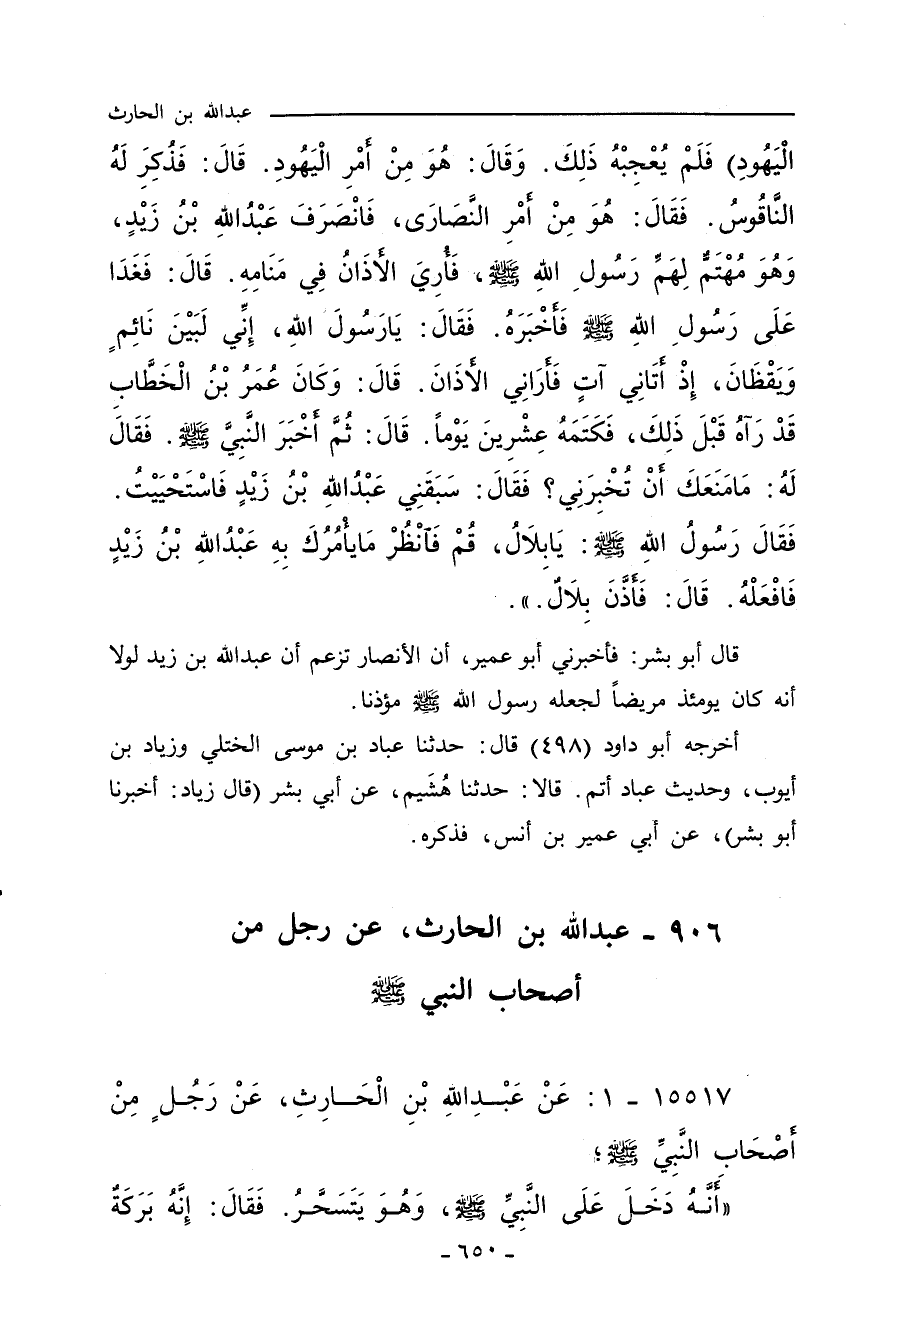 عبدالله بن الحارث
الْيَهُودِ) فَلَمْ يُعْجِبْهُ ذَلِكَ. وَقَالَ: هُوَ مِنْ أَمْرِ الْيَهُودِ. قَالَ: فَذُكِرَ لَهُ
النَّاقُوسُ. فَقَالَ: هُوَ مِنْ أَمْرِ النَّصَارَى، فَانْصَرَفَ عَبْدُاللهِ بْنُ زَيْدٍ،
وَهُوَ مُهْتَمٌّ لِهَمِّ رَسُولِ اللهِ ﷺ، فَأُرِيَ الأَذَانُ فِي مَنَامِهِ. قَالَ: فَغَدَا
عَلَى رَسُولِ اللهِ ﷺ فَأَخْبَرَهُ. فَقَالَ: يَارَسُولَ اللهِ، إِنِّي لَبَيْنَ نَائِمٍ
وَيَقْظَانَ، إِذْ أَتَانِي آتٍ فَأَرَانِي الأَذَانَ. قَالَ: وَكَانَ عُمَرُ بْنُ الْخَطَّابِ
قَدْ رَآهُ قَبْلَ ذَلِكَ، فَكَتَمَهُ عِشْرِينَ يَوْماً. قَالَ: ثُمَّ أَخْبَرَ النَّبِيَّ ﷺ. فَقَالَ
لَهُ: مَامَنَعَكَ أَنْ تُخْبِرَنِي؟ فَقَالَ: سَبَقَنِي عَبْدُاللهِ بْنُ زَيْدٍ فَاسْتَحْيَيْتُ.
فَقَالَ رَسُولُ اللهِ ﷺ: يَابِلَالُ، قُمْ فَٱنْظُرْ مَايَأْمُرُكَ بِهِ عَبْدُاللهِ بْنُ زَيْدٍ
فَافْعَلْهُ. قَالَ: فَأَذَّنَ بِلَالٌ.».
قال أبو بشر: فأخبرني أبو عمير، أن الأنصار تزعم أن عبدالله بن زيد لولا
أنه كان يومئذ مريضاً لجعله رسول الله ﷺ مؤذنا.
أخرجه أبو داود (٤٩٨) قال: حدثنا عباد بن موسى الختلي وزياد بن
أيوب، وحديث عباد أتم. قالا: حدثنا هُشَيم، عن أبي بشر (قال زياد: أخبرنا
أبو بشر)، عن أبي عمير بن أنس، فذكره.
٩٠٦ - عبدالله بن الحارث، عن رجل من
أصحاب النبي ﷺ
١٥٥١٧ - ١: عَنْ عَبْدِاللهِ بْنِ الْحَارِثِ، عَنْ رَجُلٍ مِنْ
أَصْحَابِ النَّبِيِّ ﷺ؛
«أَنَّهُ دَخَلَ عَلَى النَّبِيِّ ﷺ، وَهُوَ يَتَسَحَّرُ. فَقَالَ: إِنَّهُ بَرَكَةٌ
- ٦٥٠ -